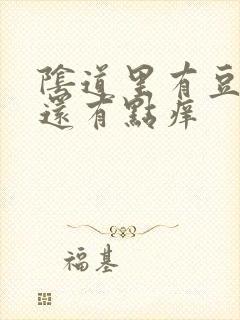 陰道里有豆
還有點痒
福基